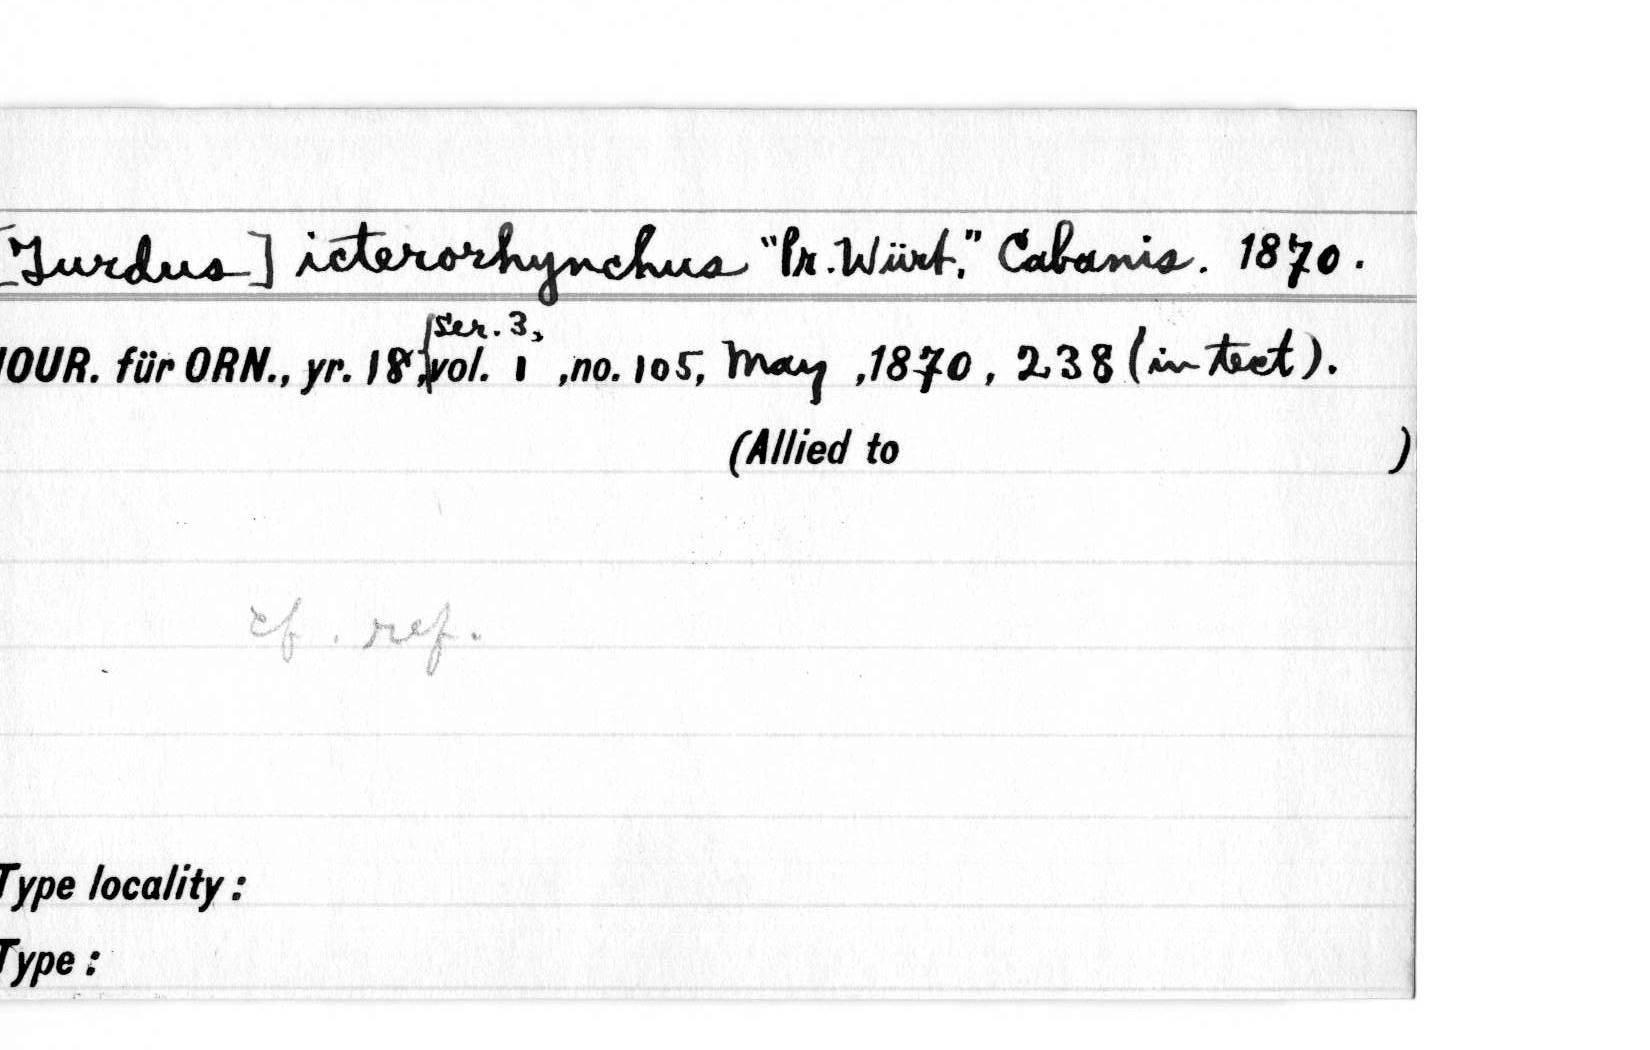 [Turdus] icterorhynchus "Pr. Würt," Cabanis. 1870.
JOUR. für ORN., yr. 18, ser. 3, vol. 1, no. 105, May, 1870, 238 (in text).
(Allied to )
cf. ref.
Type locality:
Type: